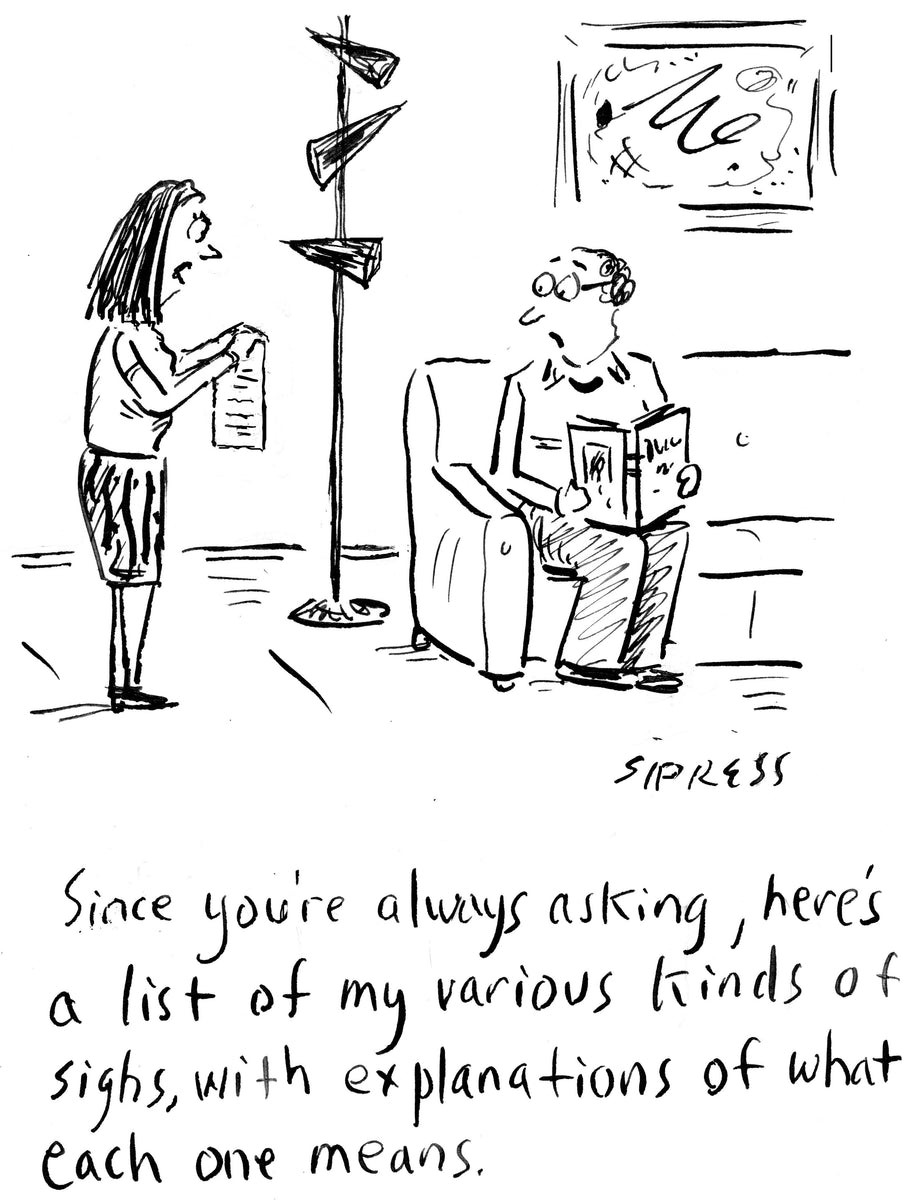 SIPRESS
Since you're always asking, here's
a list of my various kinds of
sighs, with explanations of what
each one means.